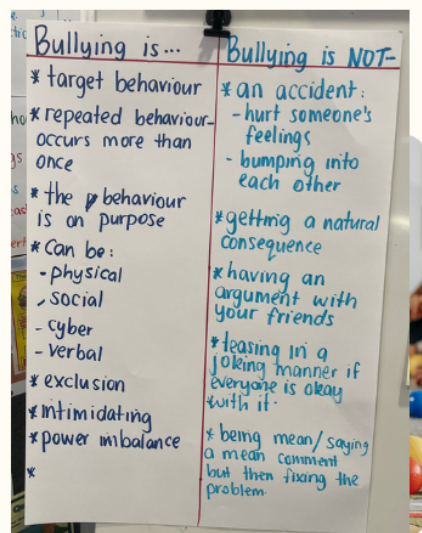 Bullying is...
* target behaviour
* repeated behaviour-
occurs more than
once
* the behaviour
is on purpose
* Can be:
- physical
- social
- cyber
- verbal
* exclusion
* intimidating
* power imbalance
*
Bullying is NOT-
* an accident:
- hurt someone's
feelings
- bumping into
each other
* getting a natural
consequence
* having an
argument with
your friends
* teasing in a
joking manner if
everyone is okay
with it.
* being mean/saying
a mean comment
but then fixing the
problem.